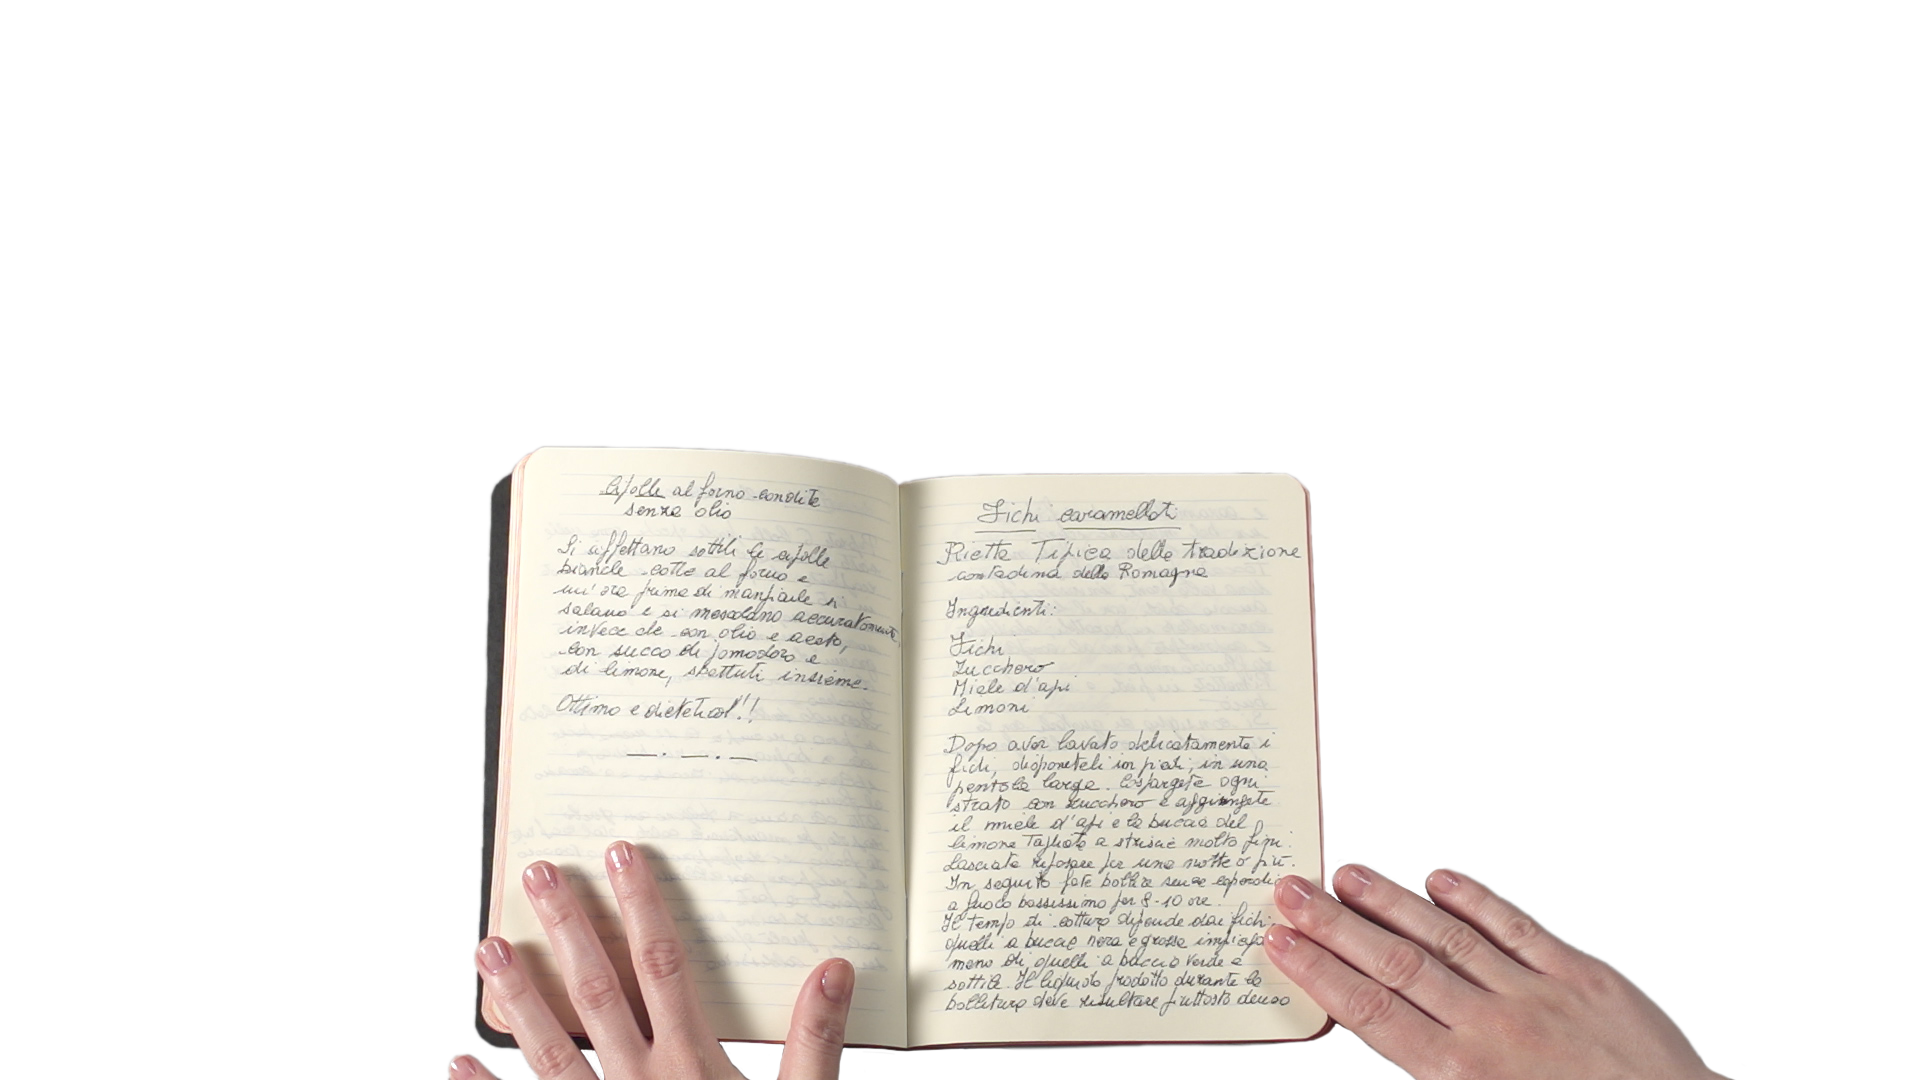 Cipolle al forno condite
senza olio
Si affettano sottili le cipolle
bianche cotte al forno e
un'ora prima di mangiarle si
salano e si mescolano accuratamente,
invece che con olio e aceto,
con succo di pomodoro e
di limone, sbattuti insieme.
Ottimo e dietetico!!!
Fichi caramellati
Ricetta Tipica della tradizione
contadina della Romagna
Ingredienti:
Fichi
Zucchero
Miele d'api
Limoni
Dopo aver lavato delicatamente i
fichi, disponeteli in piedi, in una
pentola larga. Cospargete ogni
strato con zucchero e aggiungete
il miele d'api e la buccia del
limone Tagliata a striscie molto fini.
Lasciate riposare per una notte o più.
In seguito fate bollire senza coperchio
a fuoco bassissimo per 8-10 ore.
Il tempo di cottura dipende dai fichi:
quelli a buccia nera e grossa
meno di quelli a buccia verde e
sottile. Il liquido prodotto durante la
bollitura deve risultare piuttosto denso